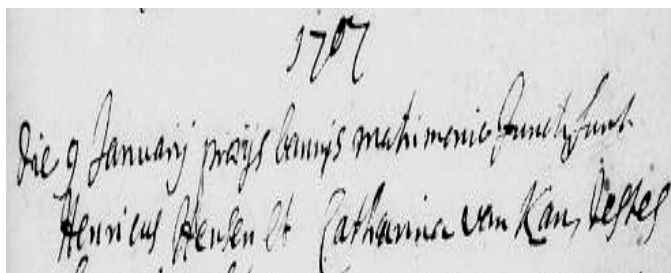 1707
die 9 Januarij prævijs bannis matrimonio juncti sunt
Henricus Hensen et Catharina van Kan, testes